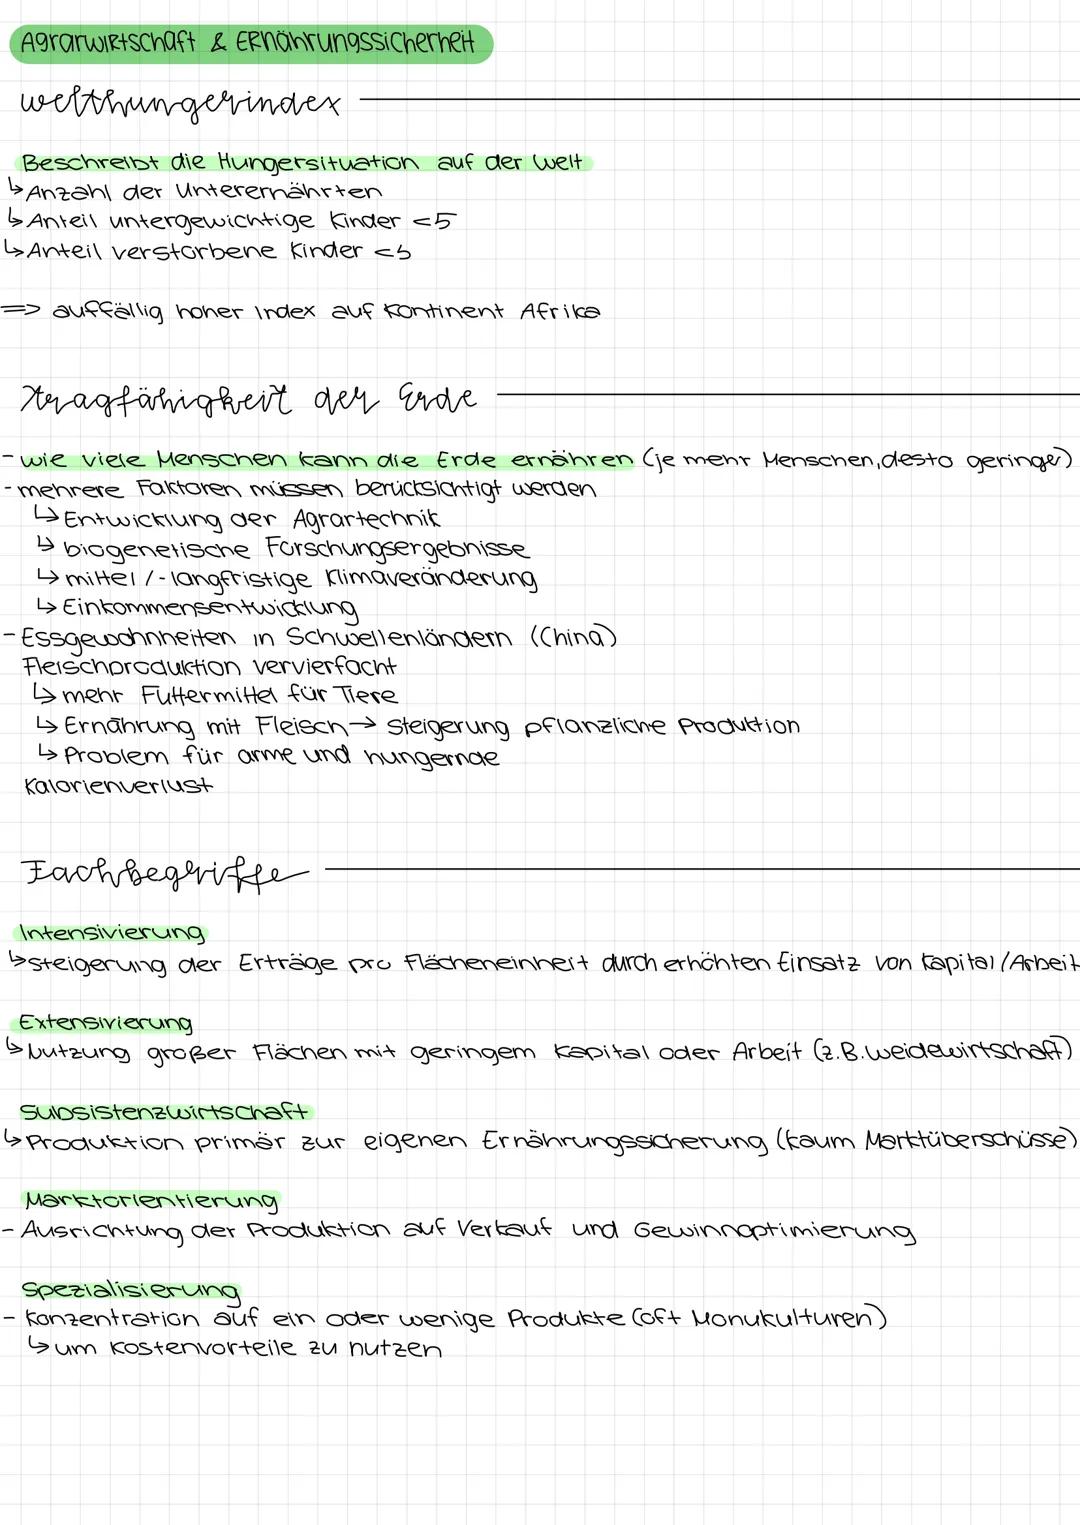 Agrarwirtschaft & Ernährungssicherheit
Welthungerindex
Beschreibt die Hungersituation auf der Welt
↳ Anzahl der Unterernährten
↳ Anteil untergewichtige Kinder <5
↳ Anteil verstorbene Kinder <5
=> auffällig hoher Index auf Kontinent Afrika
Tragfähigkeit der Erde
- wie viele Menschen kann die Erde ernähren (je mehr Menschen, desto geringer)
- mehrere Faktoren müssen berücksichtigt werden
↳ Entwicklung der Agrartechnik
↳ biogenetische Forschungsergebnisse
↳ mittel /- langfristige Klimaveränderung
↳ Einkommensentwicklung
- Essgewohnheiten in Schwellenländern (China)
Fleischproduktion vervierfacht
↳ mehr Futtermittel für Tiere
↳ Ernährung mit Fleisch → Steigerung pflanzliche Produktion
↳ Problem für arme und hungernde
Kalorienverlust
Fachbegriffe
Intensivierung
↳ Steigerung der Erträge pro Flächeneinheit durch erhöhten Einsatz von Kapital/Arbeit
Extensivierung
↳ Nutzung großer Flächen mit geringem Kapital oder Arbeit (z.B. Weidewirtschaft)
Subsistenzwirtschaft
↳ Produktion primär zur eigenen Ernährungssicherung (kaum Marktüberschüsse)
Marktorientierung
- Ausrichtung der Produktion auf Verkauf und Gewinnoptimierung
Spezialisierung
- Konzentration auf ein oder wenige Produkte (oft Monokulturen)
↳ um Kostenvorteile zu nutzen